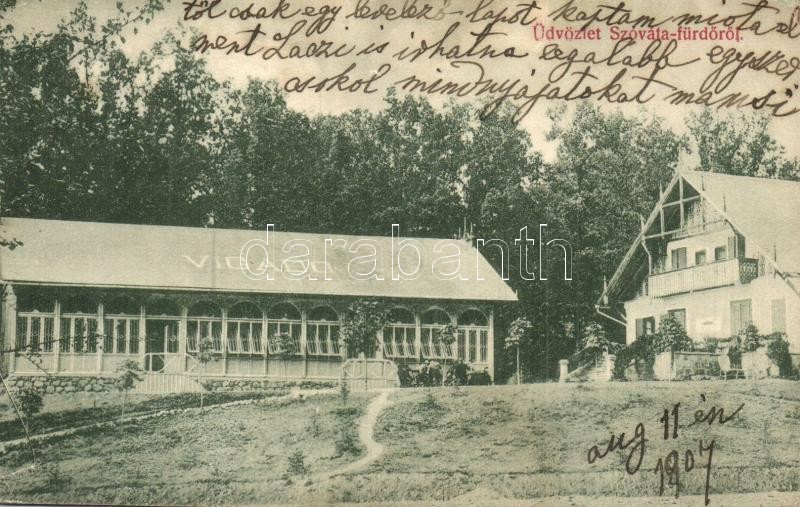 től csak egy levelező-lapot kaptam miota el
ment Laczi is irhatna legalább egyszer
csokol mindnyájatokat mamsi
Üdvözlet Szováta-fürdőről.
VIGADÓ
darabanth
aug 11 én
1907